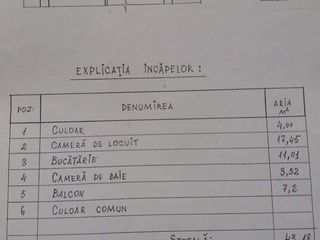 EXPLICAȚIA ÎNCĂPELOR :
POZ. DENUMIREA ARIA M²
1 CULOAR 4,00
2 CAMERĂ DE LOCUIT 17,45
3 BUCĂTĂRIE 11,01
4 CAMERĂ DE BAIE 3,52
5 BALCON 7,2
6 CULOAR COMUN